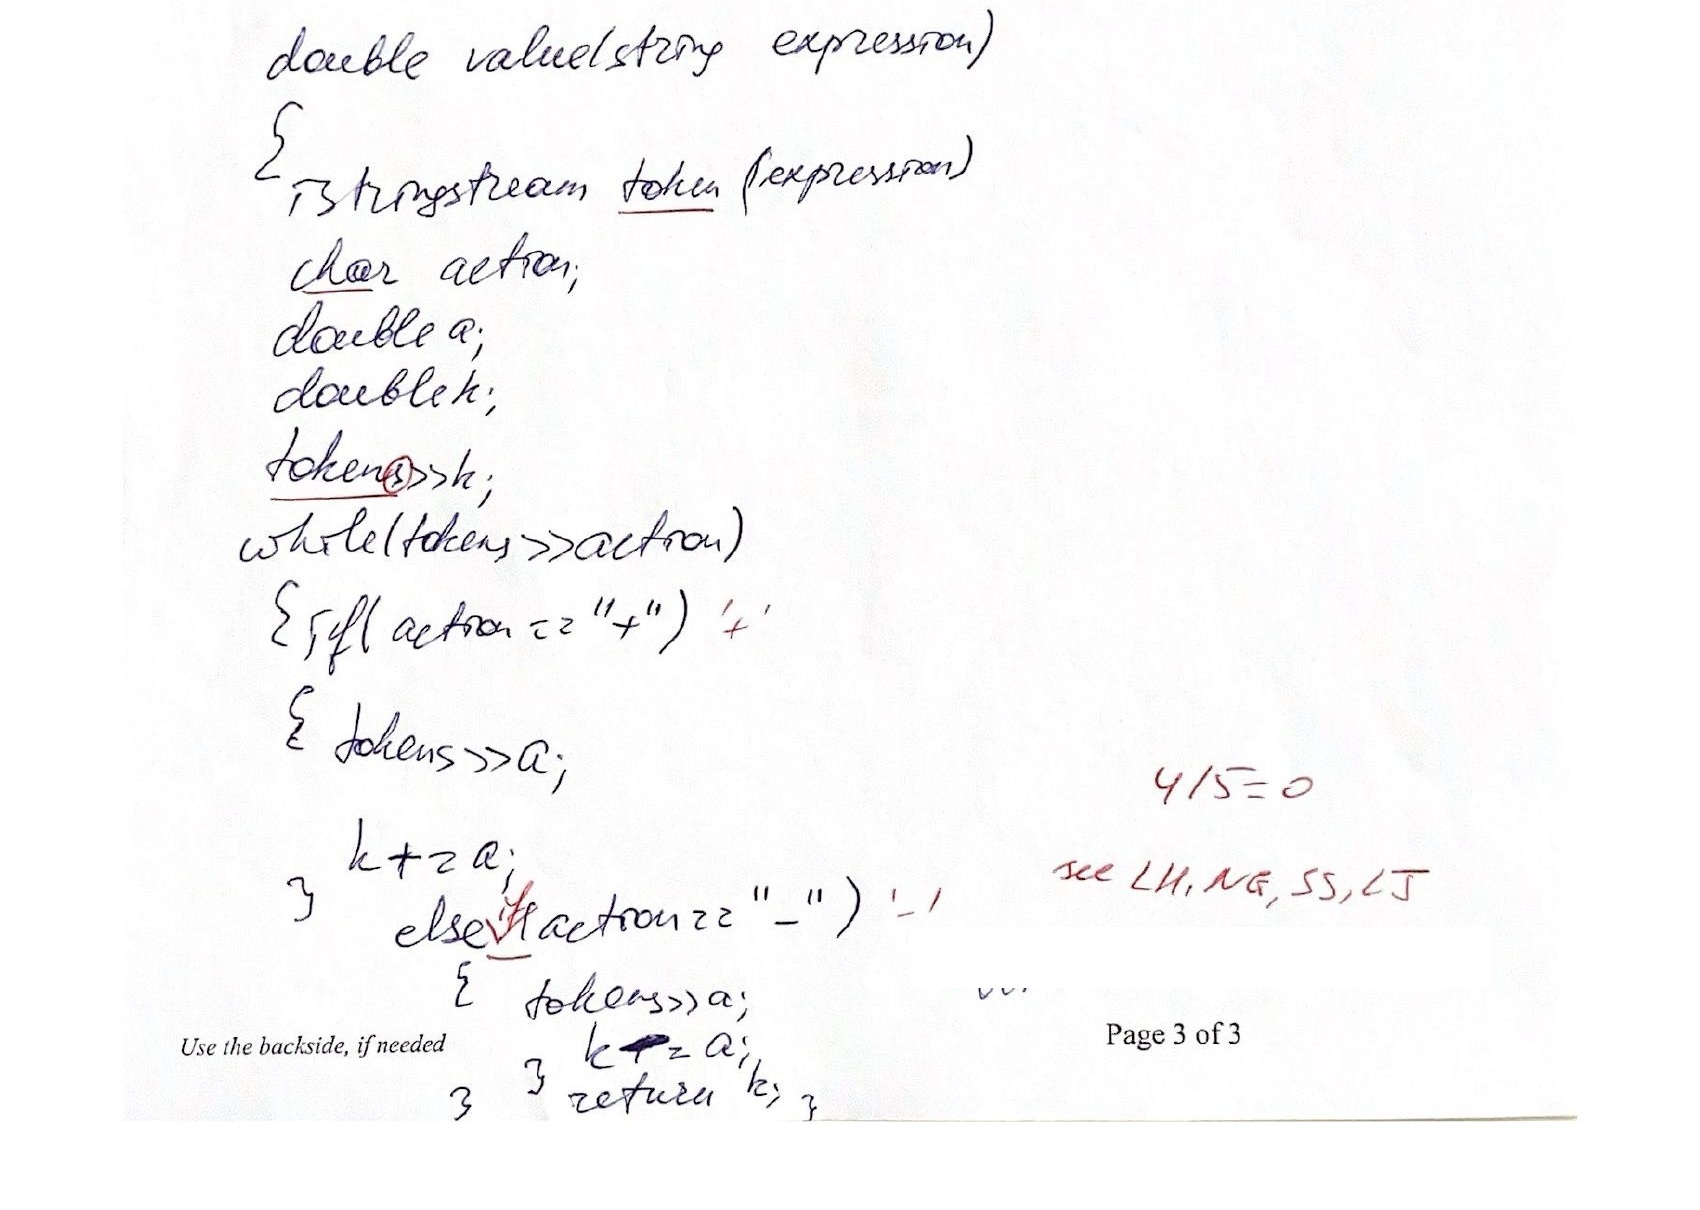 double value(string expression)
{
istringstream token (expression)
char action;
double a;
double k;
tokens>>k;
while(tokens>>action)
{if( action == "+") '+'
{ tokens>>a;
k+=a;
}
else if(action == "-") '-'
{ tokens>>a;
k-=a;
}
} return k; }
4/5=0
see LH, NG, SS, LJ
Use the backside, if needed
Page 3 of 3